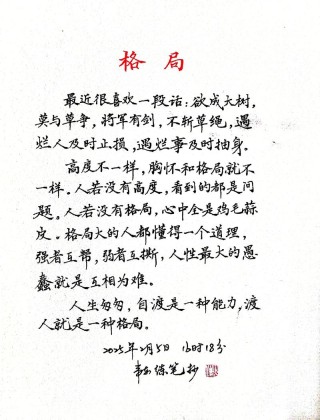 格局
最近很喜欢一段话:欲成大树,
莫与草争,将军有剑,不斩草绳,遇
烂人及时止损,遇烂事及时抽身。
高度不一样,胸怀和格局就不
一样,人若没有高度,看到的都是问
题。人若没有格局,心中全是鸡毛蒜
皮。格局大的人都懂得一个道理,
强者互帮,弱者互撕,人性最大的愚
蠢就是互相为难。
人生匆匆,自渡是一种能力,渡
人就是一种格局。
2025年2月5日 16时18分
练笔抄